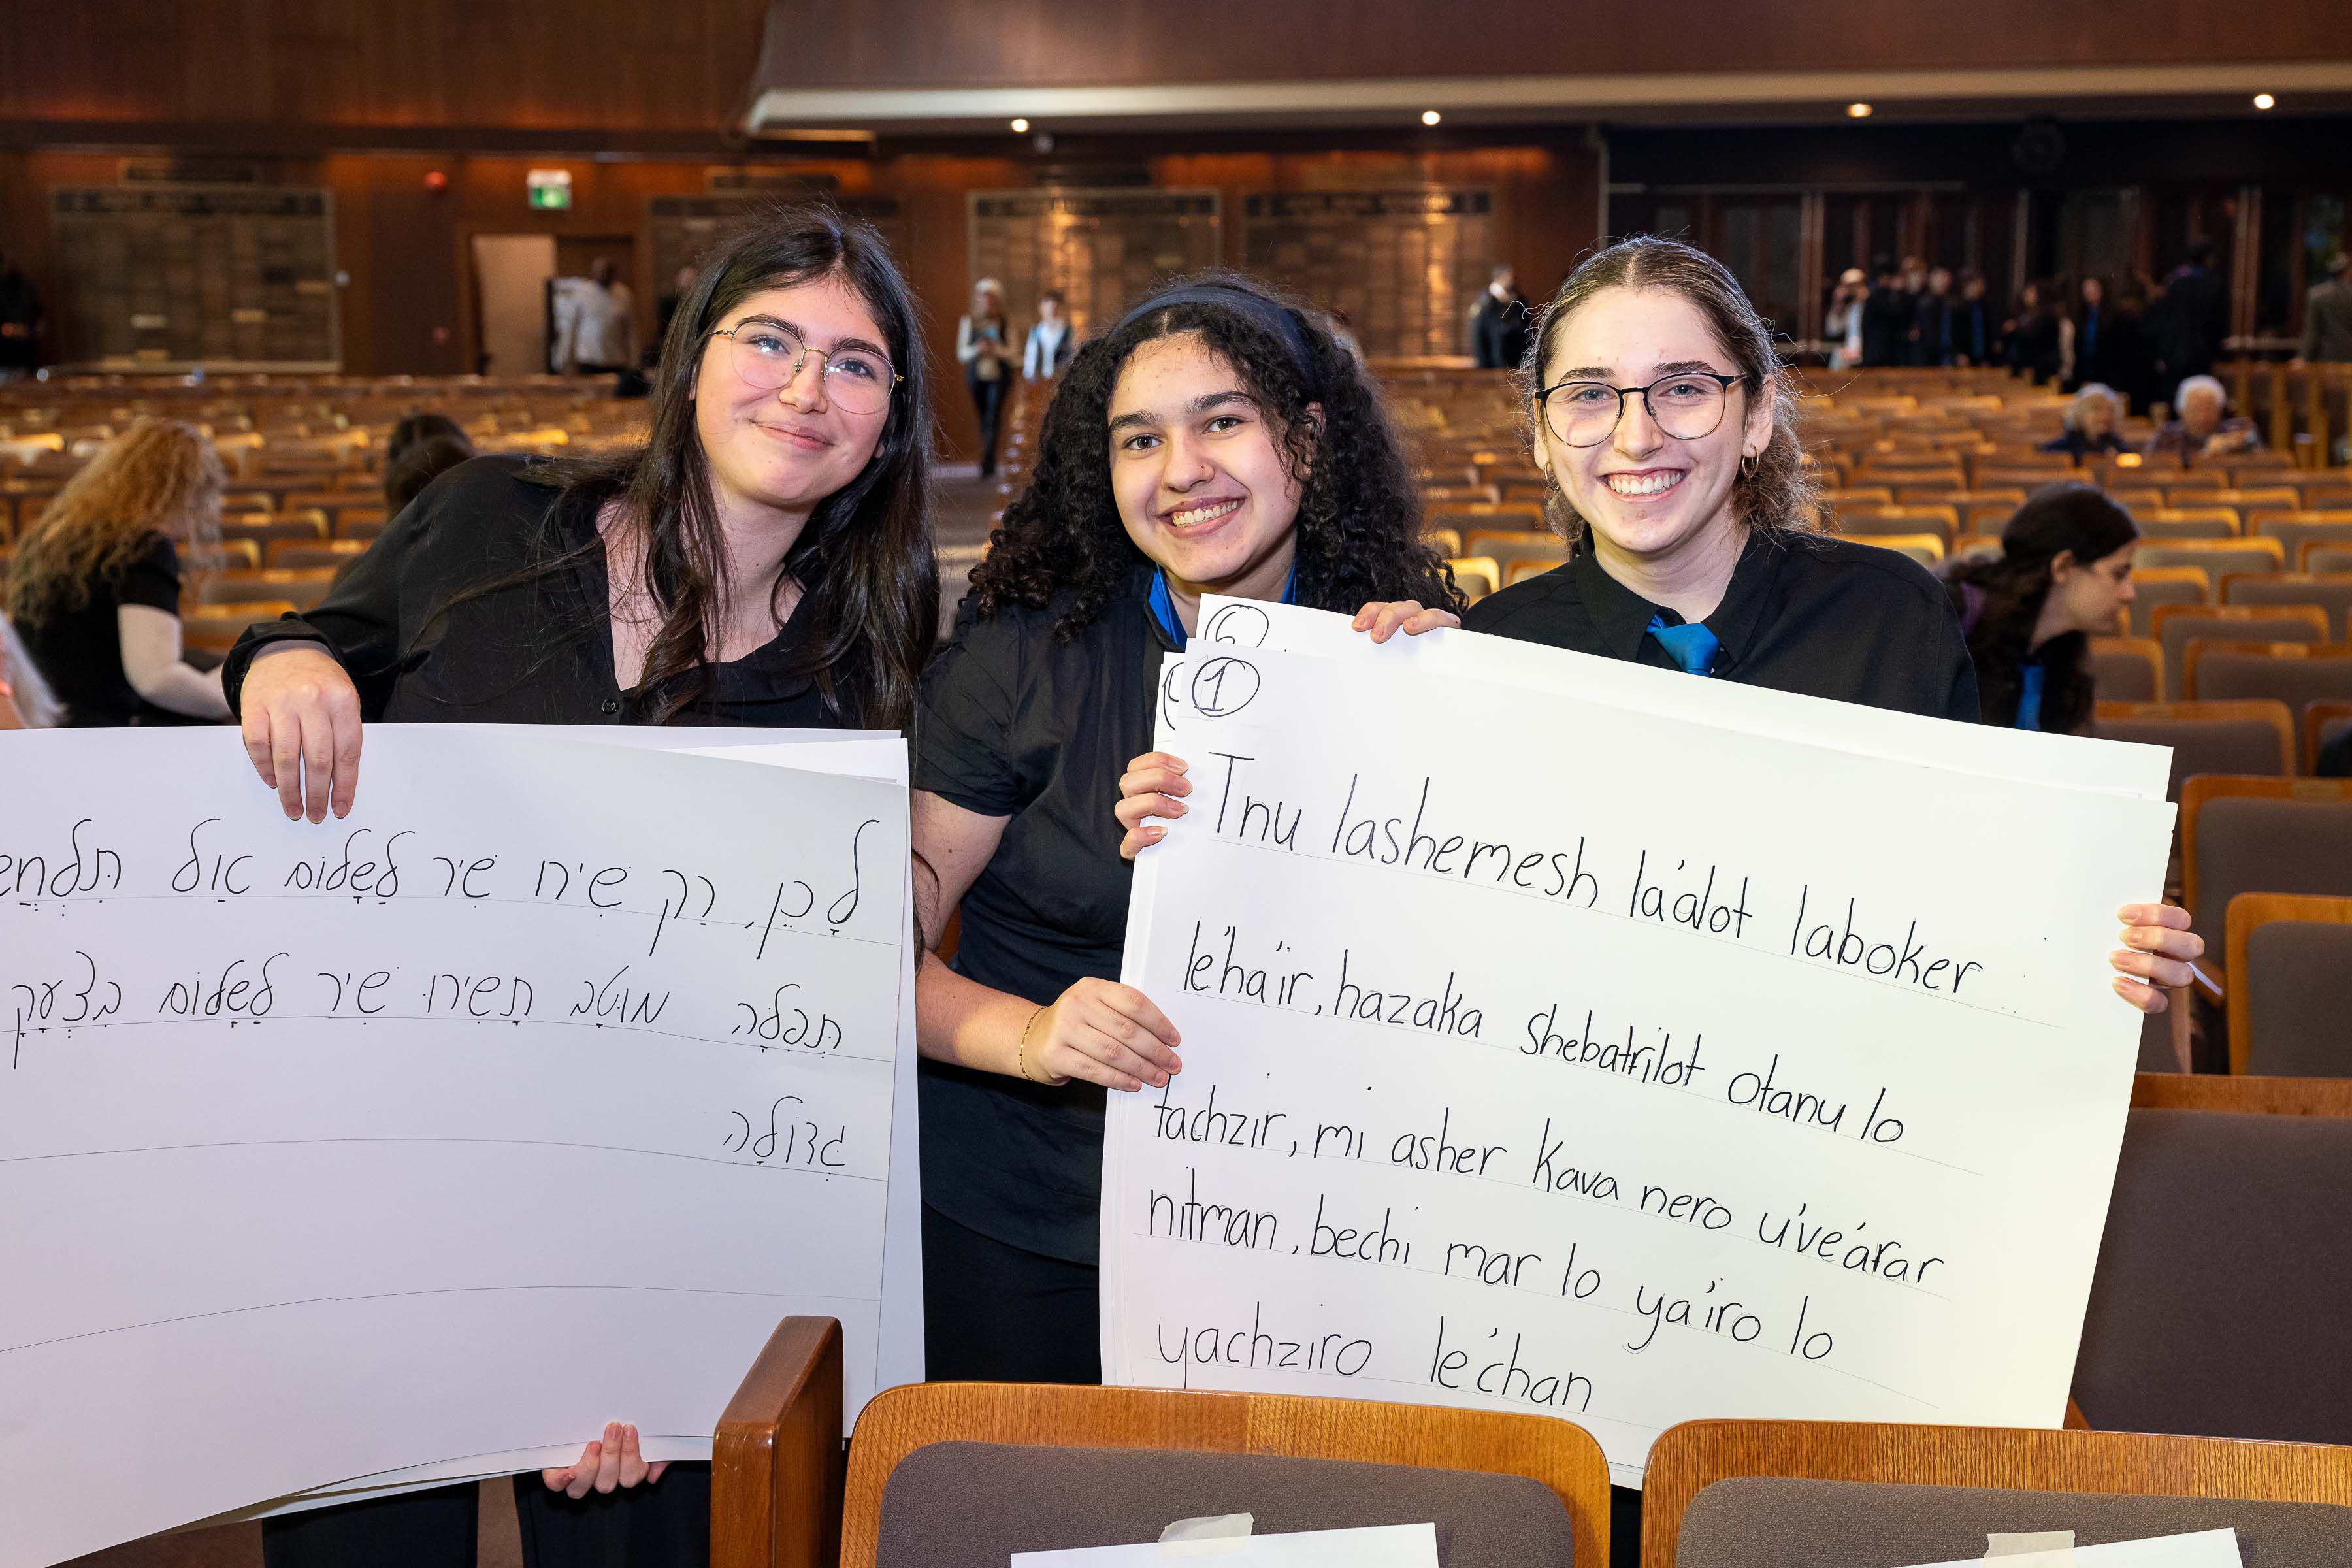 לָכֵן, רַק שִׁירוּ שִׁיר לַשָּׁלוֹם אַל תִּלְחֲשׁ
תְּפִלָּה מוּטָב תָּשִׁירוּ שִׁיר לַשָּׁלוֹם בִּצְעָקָה
גְּדוֹלָה
1
Tnu lashemesh la'alot laboker
le'ha'ir, hazaka shebatfilot otanu lo
tachzir, mi asher kava nero u've'afar
nitman, bechi mar lo ya'iro lo
yachziro le'chan